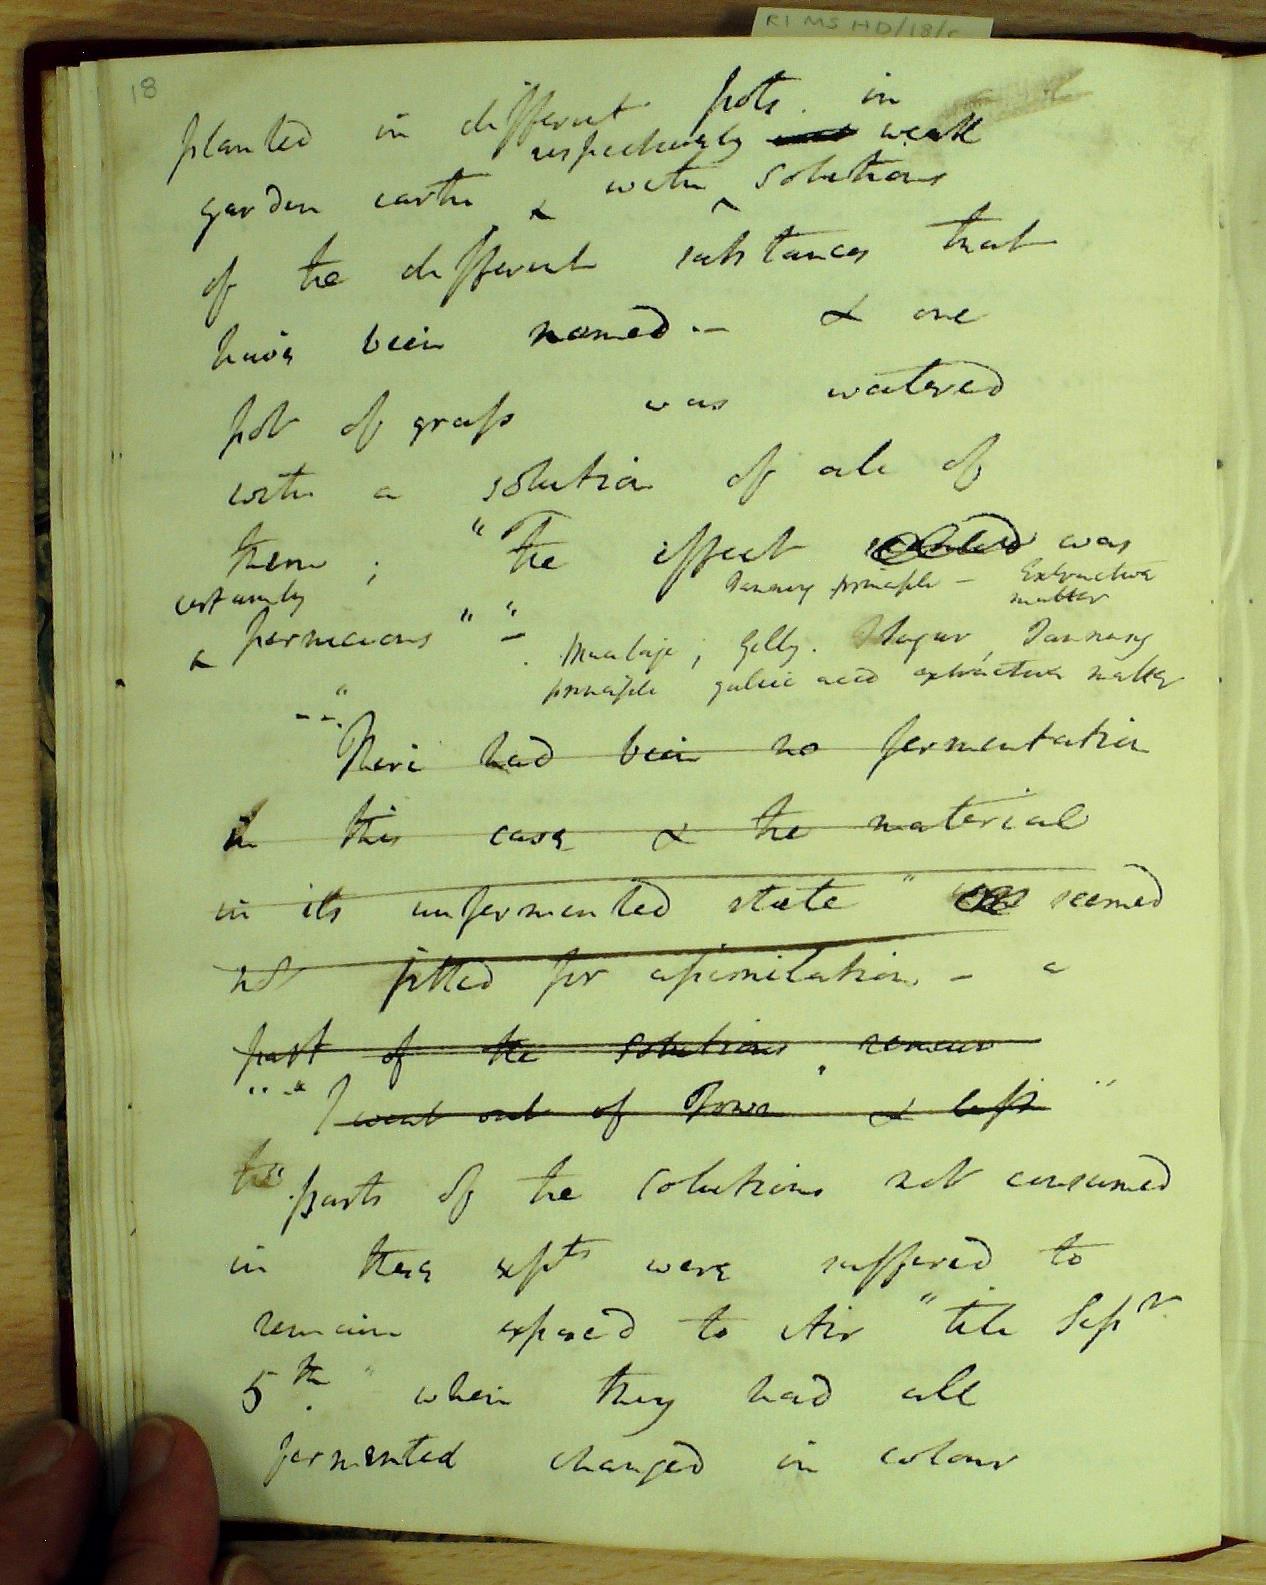 RI MS HD/18/
18
planted in different pots. in
respectively weak
garden earth & with ^ solutions
of the different substances that
have been named.– & one
pot of grass was watered
with a solution of all of
them ; "The effect was
Tanning principle – Extractive
certainly matter
a pernicious " " –
. Mucilage, Gelly. Sugar, Tanning
principle gallic acid extractive matter
There had been no fermentation
in this case & the material
in its unfermented state " seemed
not fitted for assimilation. – a
part of the solutions
" I went out of Town & left "
the" parts of the solutions not consumed
in these expts were suffered to
remain exposed to Air "till Sepr
5th. " when they had all
fermented changed in colour